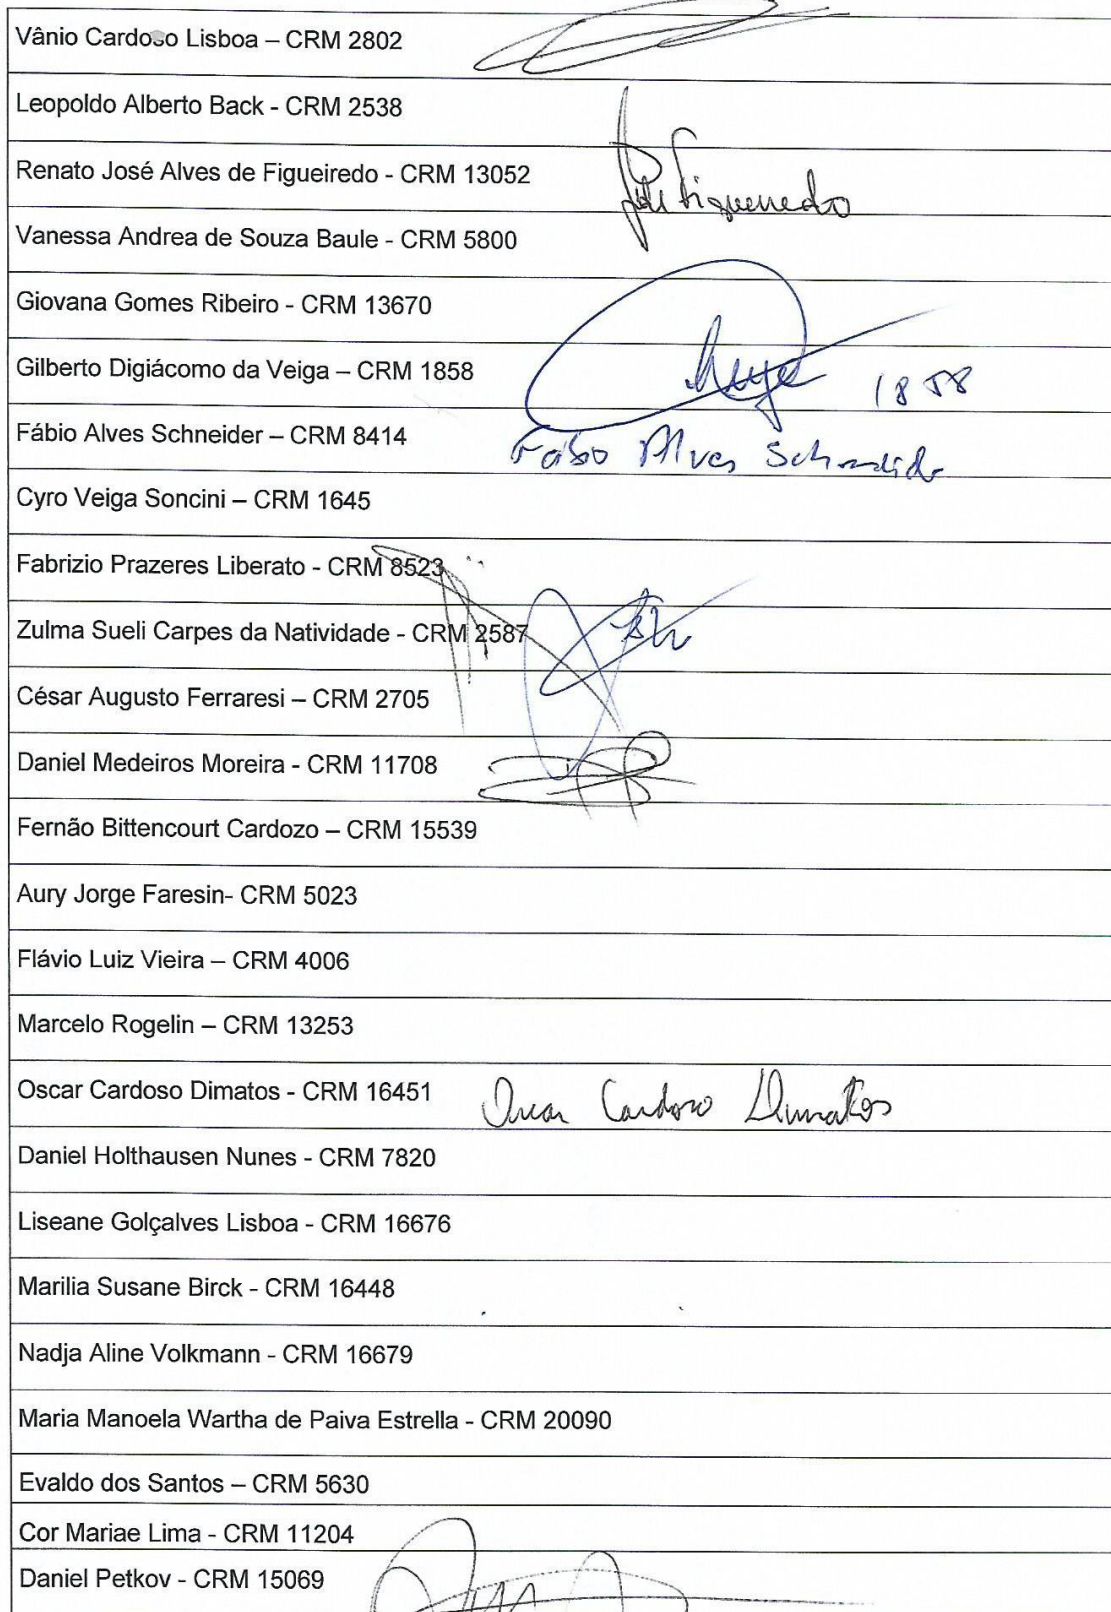 Vânio Cardoso Lisboa – CRM 2802
Leopoldo Alberto Back - CRM 2538
Renato José Alves de Figueiredo - CRM 13052
Figueiredo
Vanessa Andrea de Souza Baule - CRM 5800
Giovana Gomes Ribeiro - CRM 13670
Gilberto Digiácomo da Veiga – CRM 1858
1858
Fábio Alves Schneider – CRM 8414
Fabio Alves Schneider
Cyro Veiga Soncini – CRM 1645
Fabrizio Prazeres Liberato - CRM 8523
Zulma Sueli Carpes da Natividade - CRM 2587
César Augusto Ferraresi – CRM 2705
Daniel Medeiros Moreira - CRM 11708
Fernão Bittencourt Cardozo – CRM 15539
Aury Jorge Faresin- CRM 5023
Flávio Luiz Vieira – CRM 4006
Marcelo Rogelin – CRM 13253
Oscar Cardoso Dimatos - CRM 16451 Oscar Cardoso Dimatos
Daniel Holthausen Nunes - CRM 7820
Liseane Golçalves Lisboa - CRM 16676
Marilia Susane Birck - CRM 16448
Nadja Aline Volkmann - CRM 16679
Maria Manoela Wartha de Paiva Estrella - CRM 20090
Evaldo dos Santos – CRM 5630
Cor Mariae Lima - CRM 11204
Daniel Petkov - CRM 15069